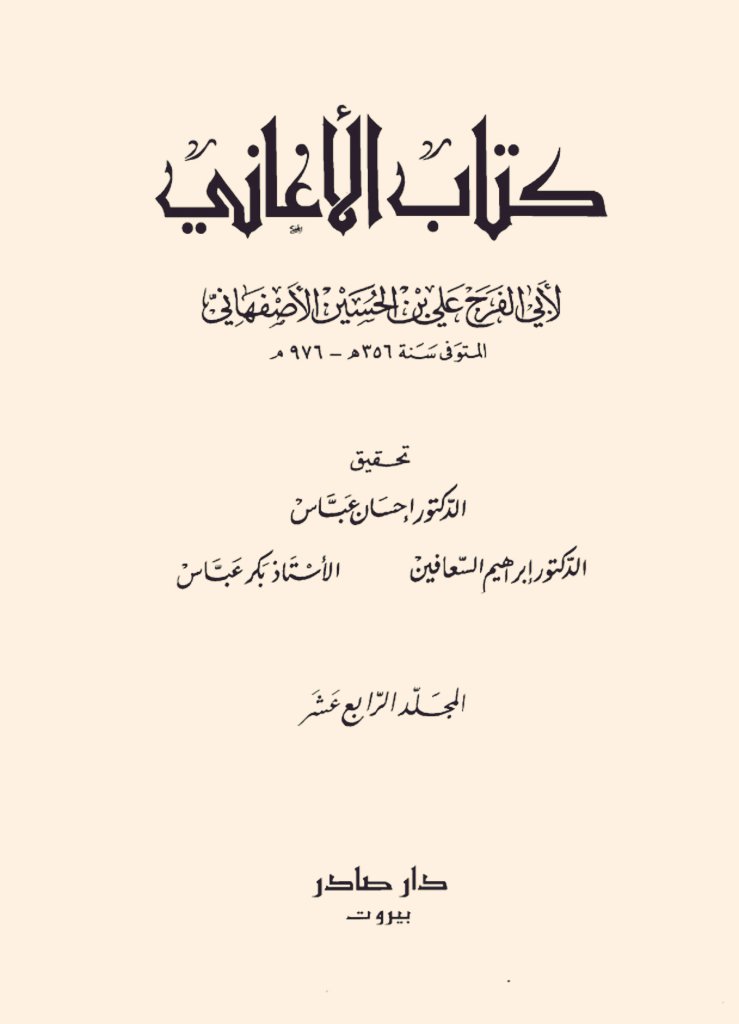 كتاب الأغاني
لأبي الفَرَج عَلي بْن الحُسَيْن الأَصْفَهَانيّ
المتوَفى سَنة ٣٥٦ هـ – ٩٧٦ م
تحقيق
الدّكتور إحسَان عَبَّاسْ
الدّكتور إبراهيم السّعافين الأسْتَاذ بَكر عَبَّاسْ
المجَلّد الرّابع عَشَر
دار صادر
بيروت